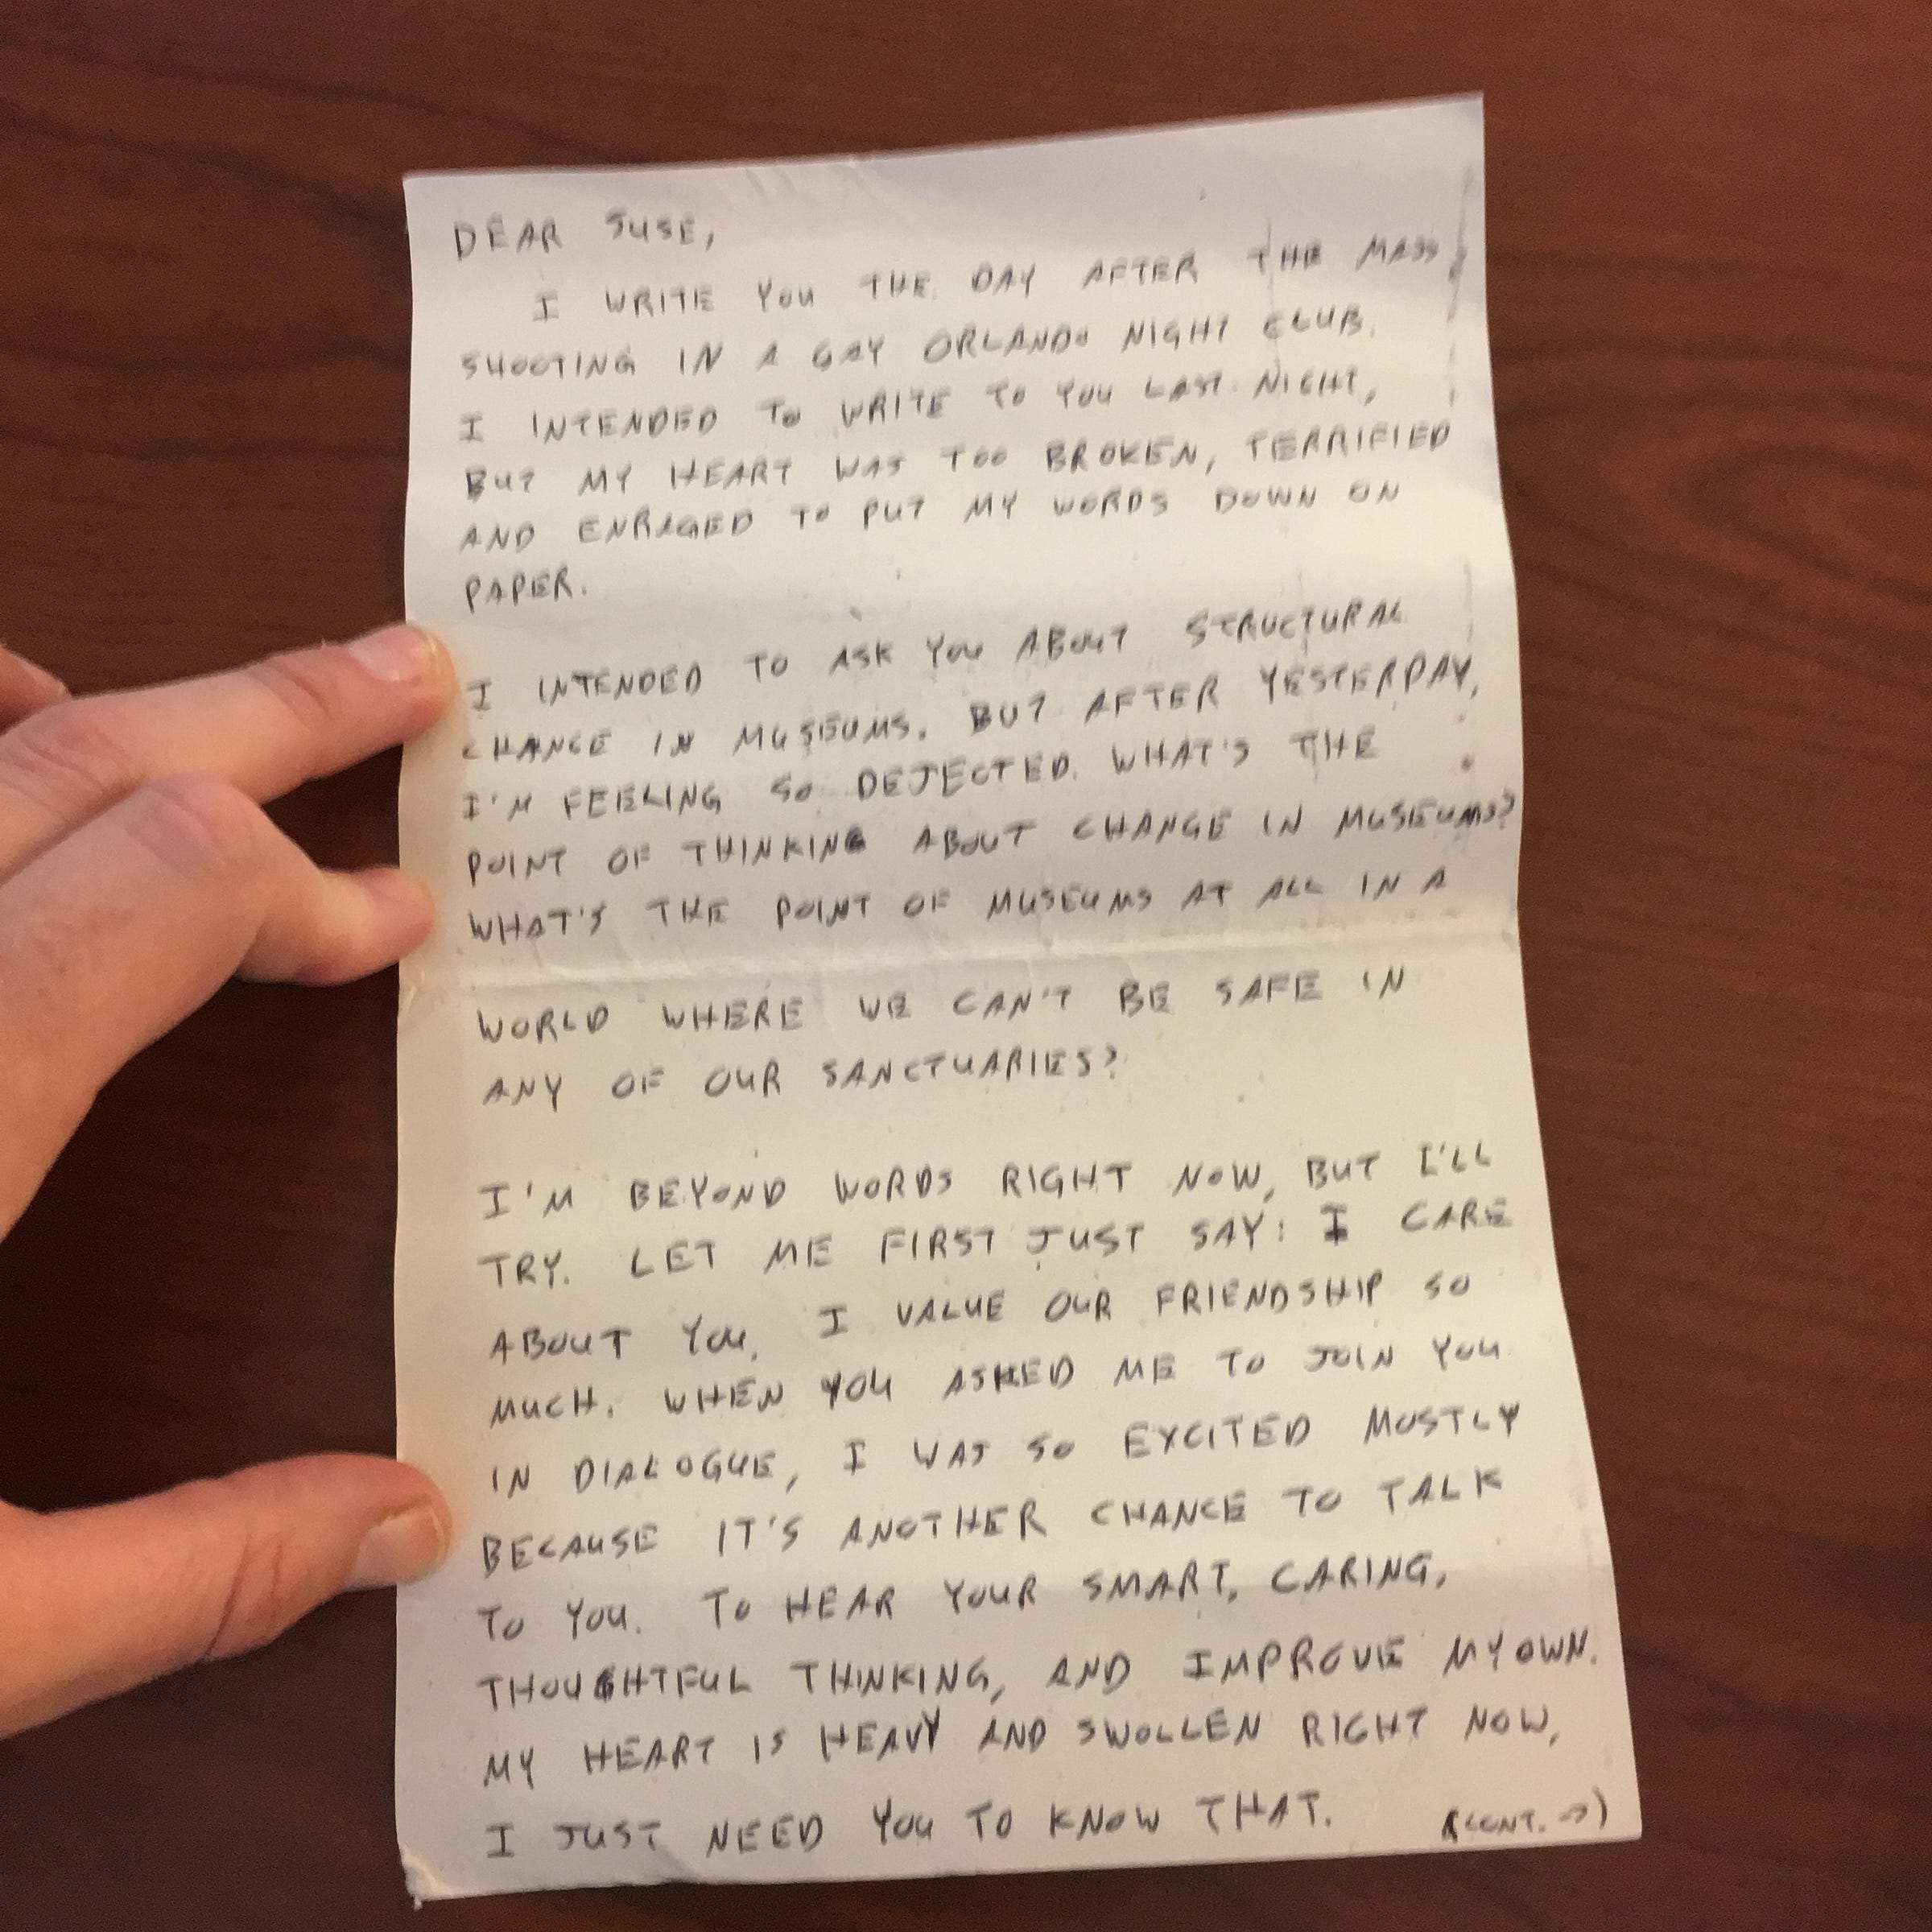 DEAR SUSE,
I WRITE YOU THE DAY AFTER THE MASS
SHOOTING IN A GAY ORLANDO NIGHT CLUB.
I INTENDED TO WRITE TO YOU LAST NIGHT,
BUT MY HEART WAS TOO BROKEN, TERRIFIED
AND ENRAGED TO PUT MY WORDS DOWN ON
PAPER.
I INTENDED TO ASK YOU ABOUT STRUCTURAL
CHANGE IN MUSEUMS. BUT AFTER YESTERDAY,
I'M FEELING SO DEJECTED. WHAT'S THE
POINT OF THINKING ABOUT CHANGE IN MUSEUMS?
WHAT'S THE POINT OF MUSEUMS AT ALL IN A
WORLD WHERE WE CAN'T BE SAFE IN
ANY OF OUR SANCTUARIES?
I'M BEYOND WORDS RIGHT NOW, BUT I'LL
TRY. LET ME FIRST JUST SAY: I CARE
ABOUT YOU. I VALUE OUR FRIENDSHIP SO
MUCH. WHEN YOU ASKED ME TO JOIN YOU
IN DIALOGUE, I WAS SO EXCITED MOSTLY
BECAUSE IT'S ANOTHER CHANCE TO TALK
TO YOU. TO HEAR YOUR SMART, CARING,
THOUGHTFUL THINKING, AND IMPROVE MY OWN.
MY HEART IS HEAVY AND SWOLLEN RIGHT NOW,
I JUST NEED YOU TO KNOW THAT. (CONT. →)